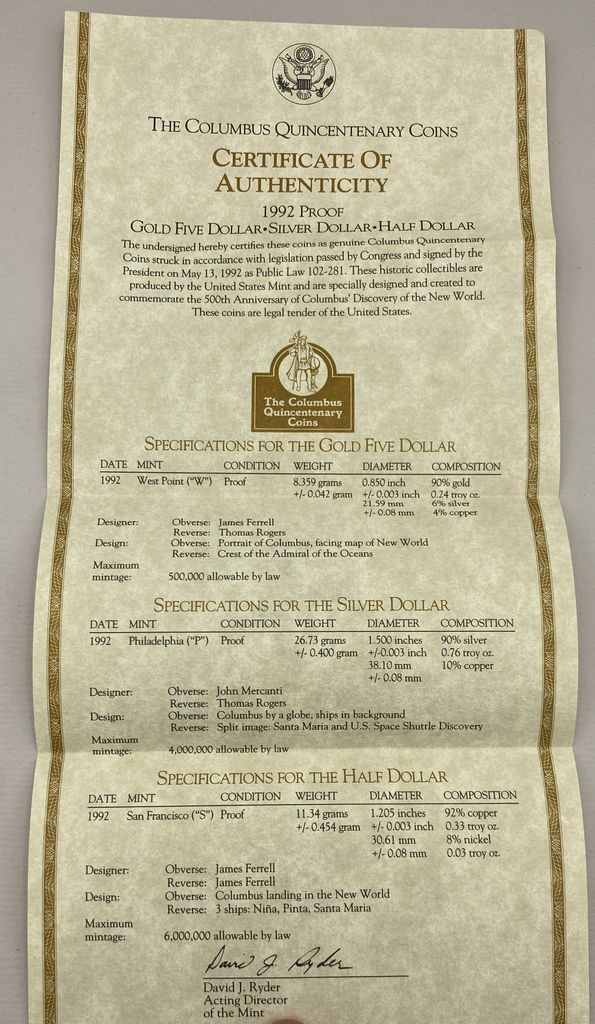 THE COLUMBUS QUINCENTENARY COINS
CERTIFICATE OF
AUTHENTICITY
1992 PROOF
GOLD FIVE DOLLAR•SILVER DOLLAR•HALF DOLLAR
The undersigned hereby certifies these coins as genuine Columbus Quincentenary
Coins struck in accordance with legislation passed by Congress and signed by the
President on May 13, 1992 as Public Law 102-281. These historic collectibles are
produced by the United States Mint and are specially designed and created to
commemorate the 500th Anniversary of Columbus' Discovery of the New World.
These coins are legal tender of the United States.
The Columbus
Quincentenary
Coins
SPECIFICATIONS FOR THE GOLD FIVE DOLLAR
DATE MINT CONDITION WEIGHT DIAMETER COMPOSITION
1992 West Point ("W") Proof 8.359 grams 0.850 inch 90% gold
+/- 0.042 gram +/- 0.003 inch 0.24 troy oz.
21.59 mm 6% silver
+/- 0.08 mm 4% copper
Designer: Obverse: James Ferrell
Reverse: Thomas Rogers
Design: Obverse: Portrait of Columbus, facing map of New World
Reverse: Crest of the Admiral of the Oceans
Maximum
mintage: 500,000 allowable by law
SPECIFICATIONS FOR THE SILVER DOLLAR
DATE MINT CONDITION WEIGHT DIAMETER COMPOSITION
1992 Philadelphia ("P") Proof 26.73 grams 1.500 inches 90% silver
+/- 0.400 gram +/-0.003 inch 0.76 troy oz.
38.10 mm 10% copper
+/- 0.08 mm
Designer: Obverse: John Mercanti
Reverse: Thomas Rogers
Design: Obverse: Columbus by a globe, ships in background
Reverse: Split image: Santa Maria and U.S. Space Shuttle Discovery
Maximum
mintage: 4,000,000 allowable by law
SPECIFICATIONS FOR THE HALF DOLLAR
DATE MINT CONDITION WEIGHT DIAMETER COMPOSITION
1992 San Francisco ("S") Proof 11.34 grams 1.205 inches 92% copper
+/- 0.454 gram +/- 0.003 inch 0.33 troy oz.
30.61 mm 8% nickel
+/- 0.08 mm 0.03 troy oz.
Designer: Obverse: James Ferrell
Reverse: James Ferrell
Design: Obverse: Columbus landing in the New World
Reverse: 3 ships: Niña, Pinta, Santa Maria
Maximum
mintage: 6,000,000 allowable by law
David J. Ryder
David J. Ryder
Acting Director
of the Mint